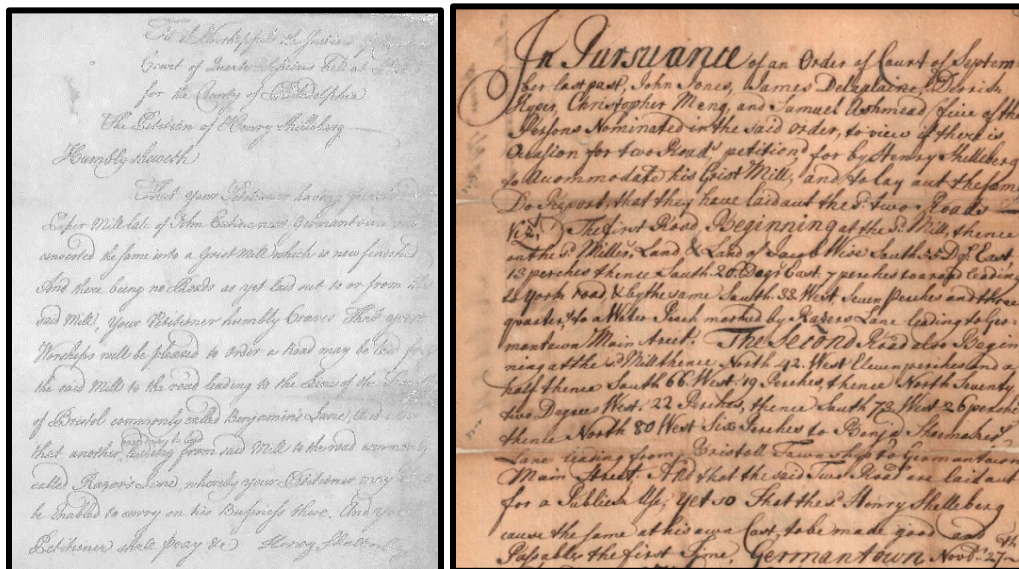 To the Worshipfull the Justices
Court of Quarter Sessions held at
for the County of Philadelphia
The Petition of Henry
Humbly sheweth
That your Petitioner having
Paper Mill late of John Germantown
converted the same into a Grist Mill which is now finished
And there being no Roads as yet laid out to or from the
said Mill, your Petitioner humbly Craves That your
Worships will be pleased to order a Road may be laid
the said Mill to the road leading to the Lines of the
of Bristol commonly called Benjamin's Lane,
that another leading from said Mill to the road commonly
called Razor's Lane, whereby your Petitioner may
be Enabled to carry on his Business there. And your
Petitioner shall pray &c Henry
In Pursuance of an Order of Court of Septem
ber last past, John Jones, James Delaplaine, Derrick
Christopher Meng, and Samuel Ashmead five of the
Persons Nominated in the said Order, to view if there is
Occasion for two Roads petition'd for by Henry Shelleberg
to Accommodate his Grist Mill, and to lay out the same
Do Report, that they have laid out the sd. two Roads
Vizt. The first Road Beginning at the sd. Mill, thence
on the sd. Millers Land & Land of Jacob Wise South 35 Dgs. East
13 perches thence South 20 Dags East 7 perches to a road leading
to York road & by the same South 33 West Seven Perches and three
quarters to a Water marked by Razors Lane leading to Ger-
mantown Main Street. The Second Road also Begin
ning at the sd. Mill thence North 42 West Eleven perches and a
half thence South 66 West 19 Perches, thence North Seventy
two Degrees West 22 Perches, thence South 73 West 26 perches
thence North 80 West Six Perches to Benja. Shoemakers
Lane leading from Bristoll Township to Germantown
Main Street. And that the said Two Road are laid out
for a Publick Use, yet so That the sd. Henry Shelleberg
cause the same at his own Cost to be made good and
Passable the first Time. Germantown Novbr. 27th